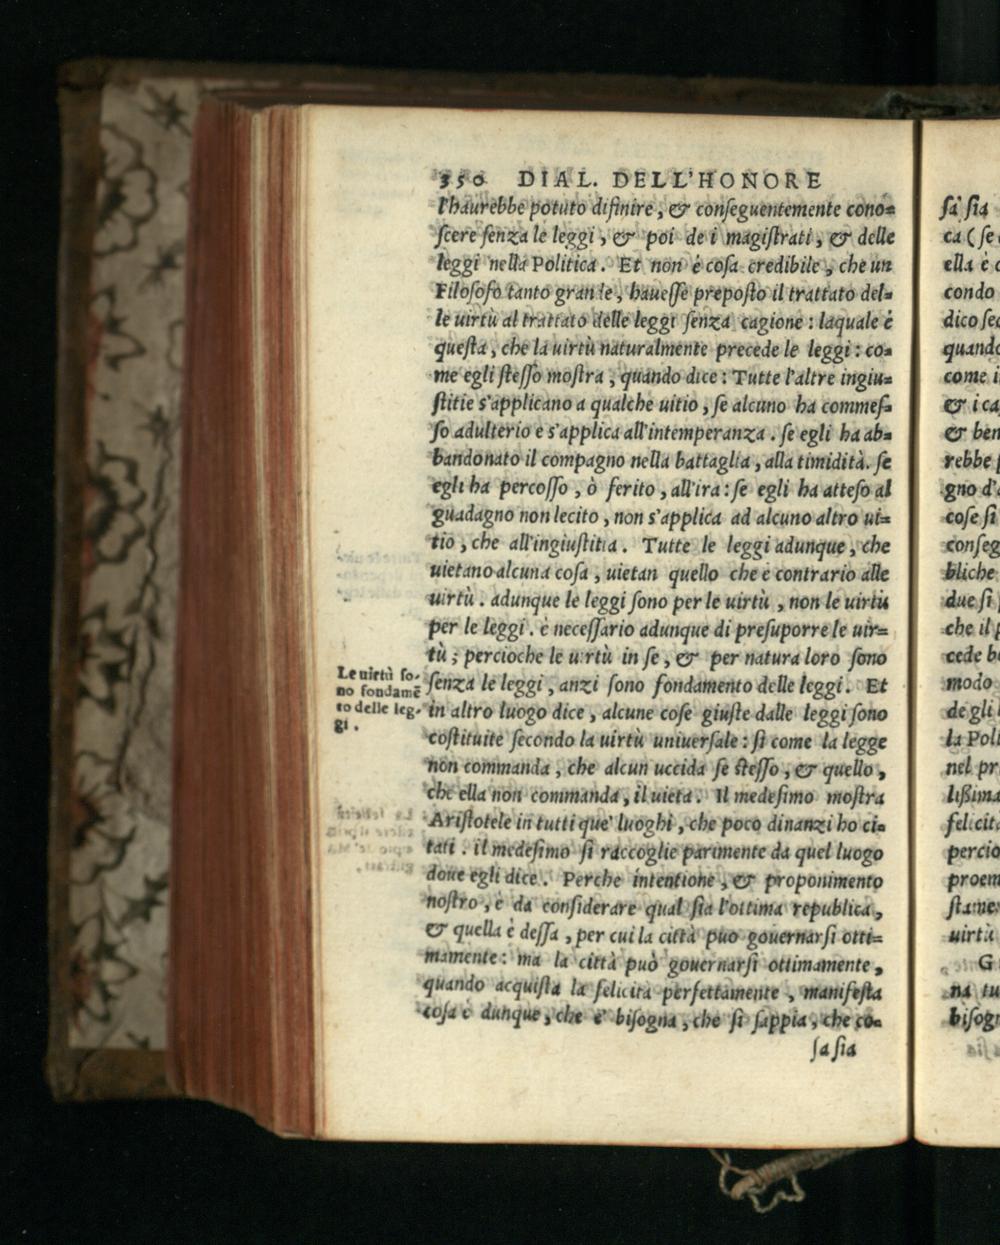 350 DIAL. DELL'HONORE
l'haurebbe potuto difinire, & conſeguentemente cono=
ſcere ſenza le leggi, & poi de i magiſtrati, & delle
leggi nella Politica. Et non é coſa credibile, che un
Filoſofo tanto grande, haueſſe prepoſto il trattato del=
le uirtù al trattato delle leggi ſenza cagione: laquale é
queſta, che la uirtù naturalmente precede le leggi: co=
me egli ſteſſo moſtra, quando dice: Tutte l'altre ingiu=
ſtitie s'applicano a qualche uitio, ſe alcuno ha commeſ=
ſo adulterio e s'applica all'intemperanza. ſe egli ha ab=
bandonato il compagno nella battaglia, alla timidità. ſe
egli ha percoſſo, ò ferito, all'ira: ſe egli ha atteſo al
guadagno non lecito, non s'applica ad alcuno altro ui=
tio, che all'ingiuſtitia. Tutte le leggi adunque, che
uietano alcuna coſa, uietan quello che é contrario alle
uirtù. adunque le leggi ſono per le uirtù, non le uirtù
per le leggi. é neceſſario adunque di preſuporre le uir=
tù; percioche le uirtù in ſe, & per natura loro ſono
ſenza le leggi, anzi ſono fondamento delle leggi. Et
in altro luogo dice, alcune coſe giuſte dalle leggi ſono
coſtituite ſecondo la uirtù uniuerſale: ſi come la legge
non commanda, che alcun uccida ſe ſteſſo, & quello,
che ella non commanda, il uieta. Il medeſimo moſtra
Ariſtotele in tutti que' luoghi, che poco dinanzi ho ci=
tati. il medeſimo ſi raccoglie parimente da quel luogo
doue egli dice. Perche intentione, & proponimento
noſtro, é da conſiderare qual ſia l'ottima republica,
& quella é deſſa, per cui la città puo gouernarſi otti=
mamente: ma la città può gouernarſi ottimamente,
quando acquiſta la felicità perfettamente, manifeſta
coſa é dunque, che e' biſogna, che ſi ſappia, che co=
ſa ſia
Le uirtù ſo-
no fondamē
to delle leg-
gi.
ſa ſia
ca (ſe
ella é
condo
dico ſec
quando
come i
& i ca
& ben
rebbe
gno d'
coſe ſi
conſeg
bliche
due ſi
che il
cede
modo
de gli
la Poli
nel pr
lißima
felicità
percio
proem
ſtame
uirtù
G
na tu
biſogn